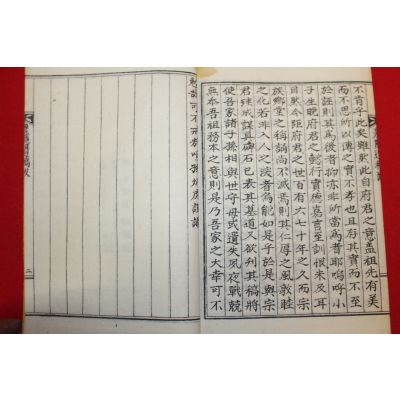 不肖乎此矣雖然此自府君之意盖祖先有美
而不思所以傳之實不孝也且存其實而不至
於誣則其爲後者抑亦非所當爲者耶嗚呼小
子生晚府君之懿行實德嘉言至訓恨未及耳
目然今距府君之世百有六七十年之久而宗
族鄕黨之稱誦尚不滅焉則其仁厚之風敦睦
之化若非入人之深者爲能如是乎於是與宗
君珠成謹具碑石已表其墓道又欲刋其稿將
使吾家諸子孫相與世守毋或遺失夙夜戰兢
無忝吾祖務本之意則是乃吾家之大幸可不